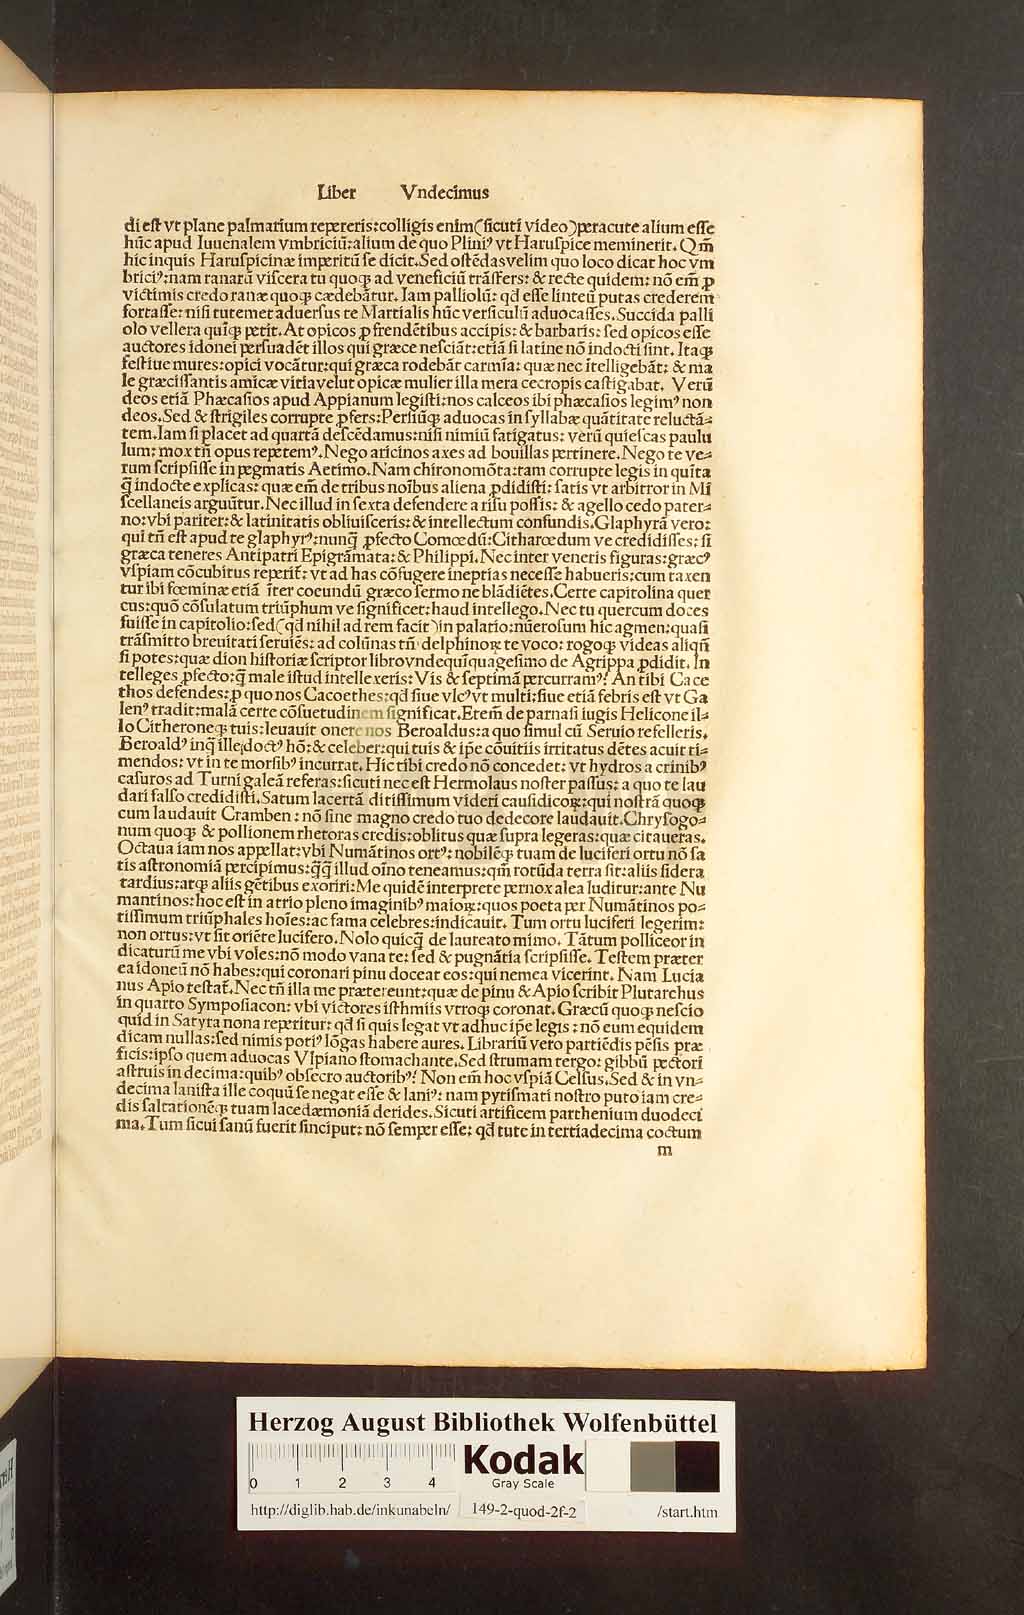 Liber Vndecimus
di est vt plane palmarium repereris:colligis enim(sicuti video)peracute alium esse
hūc apud Iuuenalem vmbriciū:alium de quo Pliniꝰ vt Haruspice meminerit. Qm̄
hic inquis Haruspicinæ imperitū se dicit. Sed ostēdas velim quo loco dicat hoc vm
briciꝰ:nam ranarū viscera tu quoqꝫ ad veneficiū trāsfers: & recte quidem: nō em̄ ꝓ
victimis credo ranæ quoqꝫ cædebātur. Iam palliolū: qd̄ esse linteū putas crederem
fortasse: nisi tutemet aduersus te Martialis hūc versiculū aduocasses. Succida palli
olo vellera quīqꝫ petit. At opicos ꝓ frendētibus accipis: & barbaris: sed opicos esse
auctores idonei persuadēt illos qui græce nesciāt:etiā si latine nō indocti sint. Itaqꝫ
festiue mures:opici vocātur:qui græca rodebāt carmīa: quæ nec ītelligebāt: & ma
le græcissantis amicæ vitia velut opicæ mulier illa mera cecropis castigabat. Verū
deos etiā Phæcasios apud Appianum legisti:nos calceos ibi phæcasios legimꝰ non
deos. Sed & strigiles corrupte ꝓfers:Persiūqꝫ aduocas in syllabæ quātitate reluctā-
tem. Iam si placet ad quartā descēdamus:nisi nimiū fatigatus: verū quiescas paulu
lum: mox tn̄ opus repetemꝰ. Nego aricinos axes ad bouillas pertinere. Nego te ve-
rum scripsisse in pegmatis Aetimo. Nam chironomōta:tam corrupte legis in quīta
q̄ indocte explicas: quæ em̄ de tribus noībus aliena ꝓdidisti: satis vt arbitror in Mi
scellaneis arguūtur. Nec illud in sexta defendere a risu possis: & agello cedo pater-
no:vbi pariter:& latinitatis obliuisceris:& intellectum confundis. Glaphyrā vero:
qui tn̄ est apud te glaphyrꝰ:nunq̄ ꝓfecto Comœdū:Citharœdum ve credidisses: si
græca teneres Antipatri Epigrāmata:& Philippi. Nec inter veneris figuras:græcꝰ
vspiam cōcubitus reperit᷑: vt ad has cōfugere ineptias necesse habueris:cum taxen
tur ibi fœminæ etiā īter coeundū græco sermone blādiētes. Certe capitolina quer
cus:quō cōsulatum triūphum ve significet: haud intellego. Nec tu quercum doces
fuisse in capitolio:sed(qd̄ nihil ad rem facit)in palatio:nūerosum hic agmen:quasi
trāsmitto breuitati seruiēs: ad colūnas tn̄ delphinoꝝ te voco: rogoqꝫ videas aliqn̄
si potes:quæ dion historiæ scriptor libro vndequīquagesimo de Agrippa ꝓdidit. In
telleges ꝓfecto:q̄ male istud intellexeris: Vis & septimā percurramꝰ? An tibi Cace
thos defendes:ꝓ quo nos Cacoethes:qd̄ siue vlcꝰ vt multi:siue etiā febris est vt Ga
lenꝰ tradit:malā certe cōsuetudinem significat. Etem̄ de parnasi iugis Helicone il-
lo Citheroneqꝫ tuis:leuauit onere nos Beroaldus:a quo simul cū Seruio refelleris.
Beroaldꝰ inq̄ ille:doctꝰ hō:& celeber:qui tuis & ip̄e cōuitiis irritatus dētes acuit ti-
mendos: vt in te morsibꝰ incurrat. Hic tibi credo nō concedet: vt hydros a crinibꝰ
casuros ad Turni galeā referas:sicuti nec est Hermolaus noster passus: a quo te lau
dari falso credidisti. Satum lacertā ditissimum videri causidicoꝝ:qui nostrā quoqꝫ
cum laudauit Cramben : nō sine magno credo tuo dedecore laudauit. Chrysogo-
num quoqꝫ & pollionem rhetoras credis:oblitus quæ supra legeras:quæ citaueras.
Octaua iam nos appellat:vbi Numātinos ortꝰ: nobilēqꝫ tuam de luciferi ortu nō sa
tis astronomiā percipimus:q̄q̄ illud oīno teneamus:qm̄ rotūda terra sit:aliis sidera
tardius:atqꝫ aliis gētibus exoriri:Me quidē interprete pernox alea luditur:ante Nu
mantinos:hoc est in atrio pleno imaginibꝰ maioꝝ:quos poeta per Numātinos po-
tissimum triūphales hoīes:ac fama celebres:indicauit. Tum ortu luciferi legerim:
non ortus:vt sit oriēte lucifero. Nolo quicq̄ de laureato mimo. Tātum polliceor in
dicaturū me vbi voles:nō modo vana te: sed & pugnātia scripsisse. Testem præter
ea idoneū nō habes:qui coronari pinu doceat eos:qui nemea vicerint. Nam Lucia
nus Apio testat᷑. Nec tn̄ illa me prætereunt:quæ de pinu & Apio scribit Plutarchus
in quarto Symposiacon: vbi victores isthmiis vtroqꝫ coronat. Græcū quoqꝫ nescio
quid in Satyra nona reperitur: qd̄ si quis legat vt adhuc ip̄e legis : nō eum equidem
dicam nullas:sed nimis potiꝰ lōgas habere aures. Librariū vero partiēdis pēsis præ
ficis:ipso quem aduocas Vlpiano stomachante. Sed strumam tergo: gibbū pectori
astruis in decima:quibꝰ obsecro auctoribꝰ? Non em̄ hoc vspiā Celsus. Sed & in vn-
decima lanista ille coquū se negat esse & laniꝰ: nam pytismati nostro puto iam cre-
dis saltationēqꝫ tuam lacedæmoniā derides. Sicuti artificem parthenium duodeci
ma. Tum sicui sanū fuerit sinciput: nō semper esse: qd̄ tute in tertiadecima coctum
m
Herzog August Bibliothek Wolfenbüttel
0 1 2 3 4 Kodak
Gray Scale
http://diglib.hab.de/inkunabeln/ 149-2-quod-2f-2 /start.htm